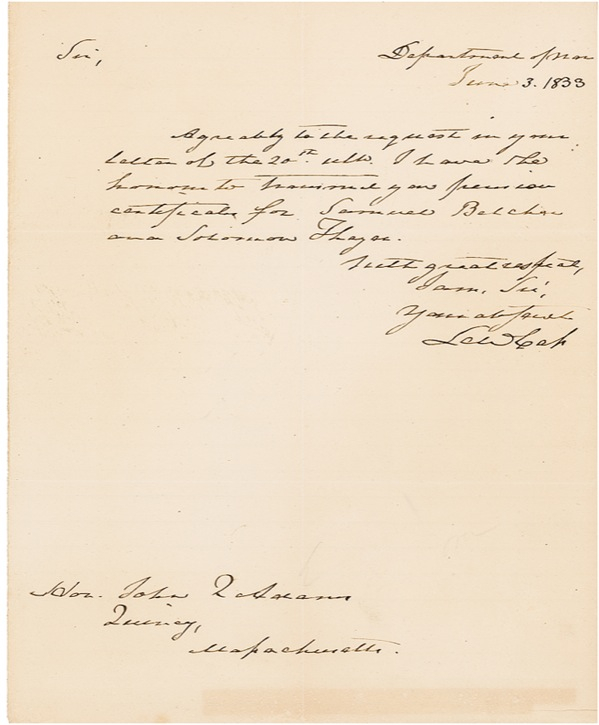 Sir,
Department of War
June 3. 1833
Agreeably to the request in your
letter of the 20th ulto. I have the
honour to transmit you pension
certificates for Samuel Belcher
and Solomon Thayer.
With great respect,
I am, Sir,
Your obt servt
Lew Cass
Hon. John Q Adams
Quincy,
Massachusetts.